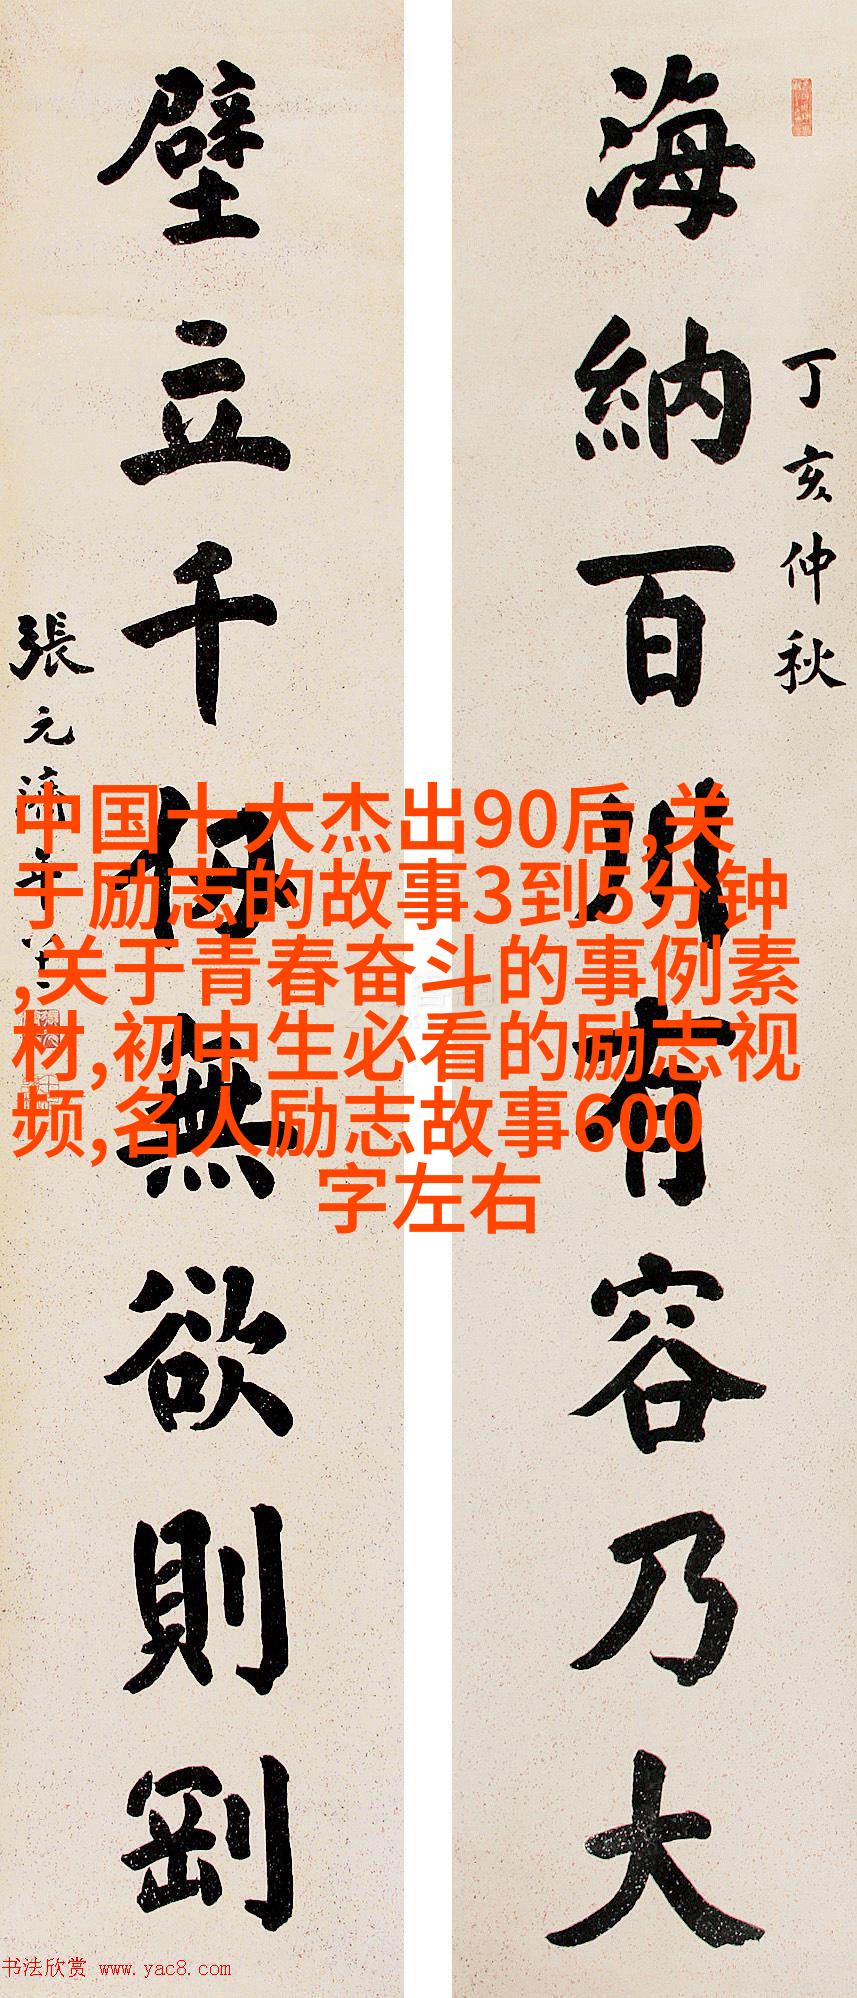 海納百川有容乃大
丁亥仲秋
壁立千仞無欲則剛
張元濟
中国十大杰出90后,关
于励志的故事3到5分钟
,关于青春奋斗的事例素
材,初中生必看的励志视
频,名人励志故事600
字左右
书法欣赏 www.yac8.com